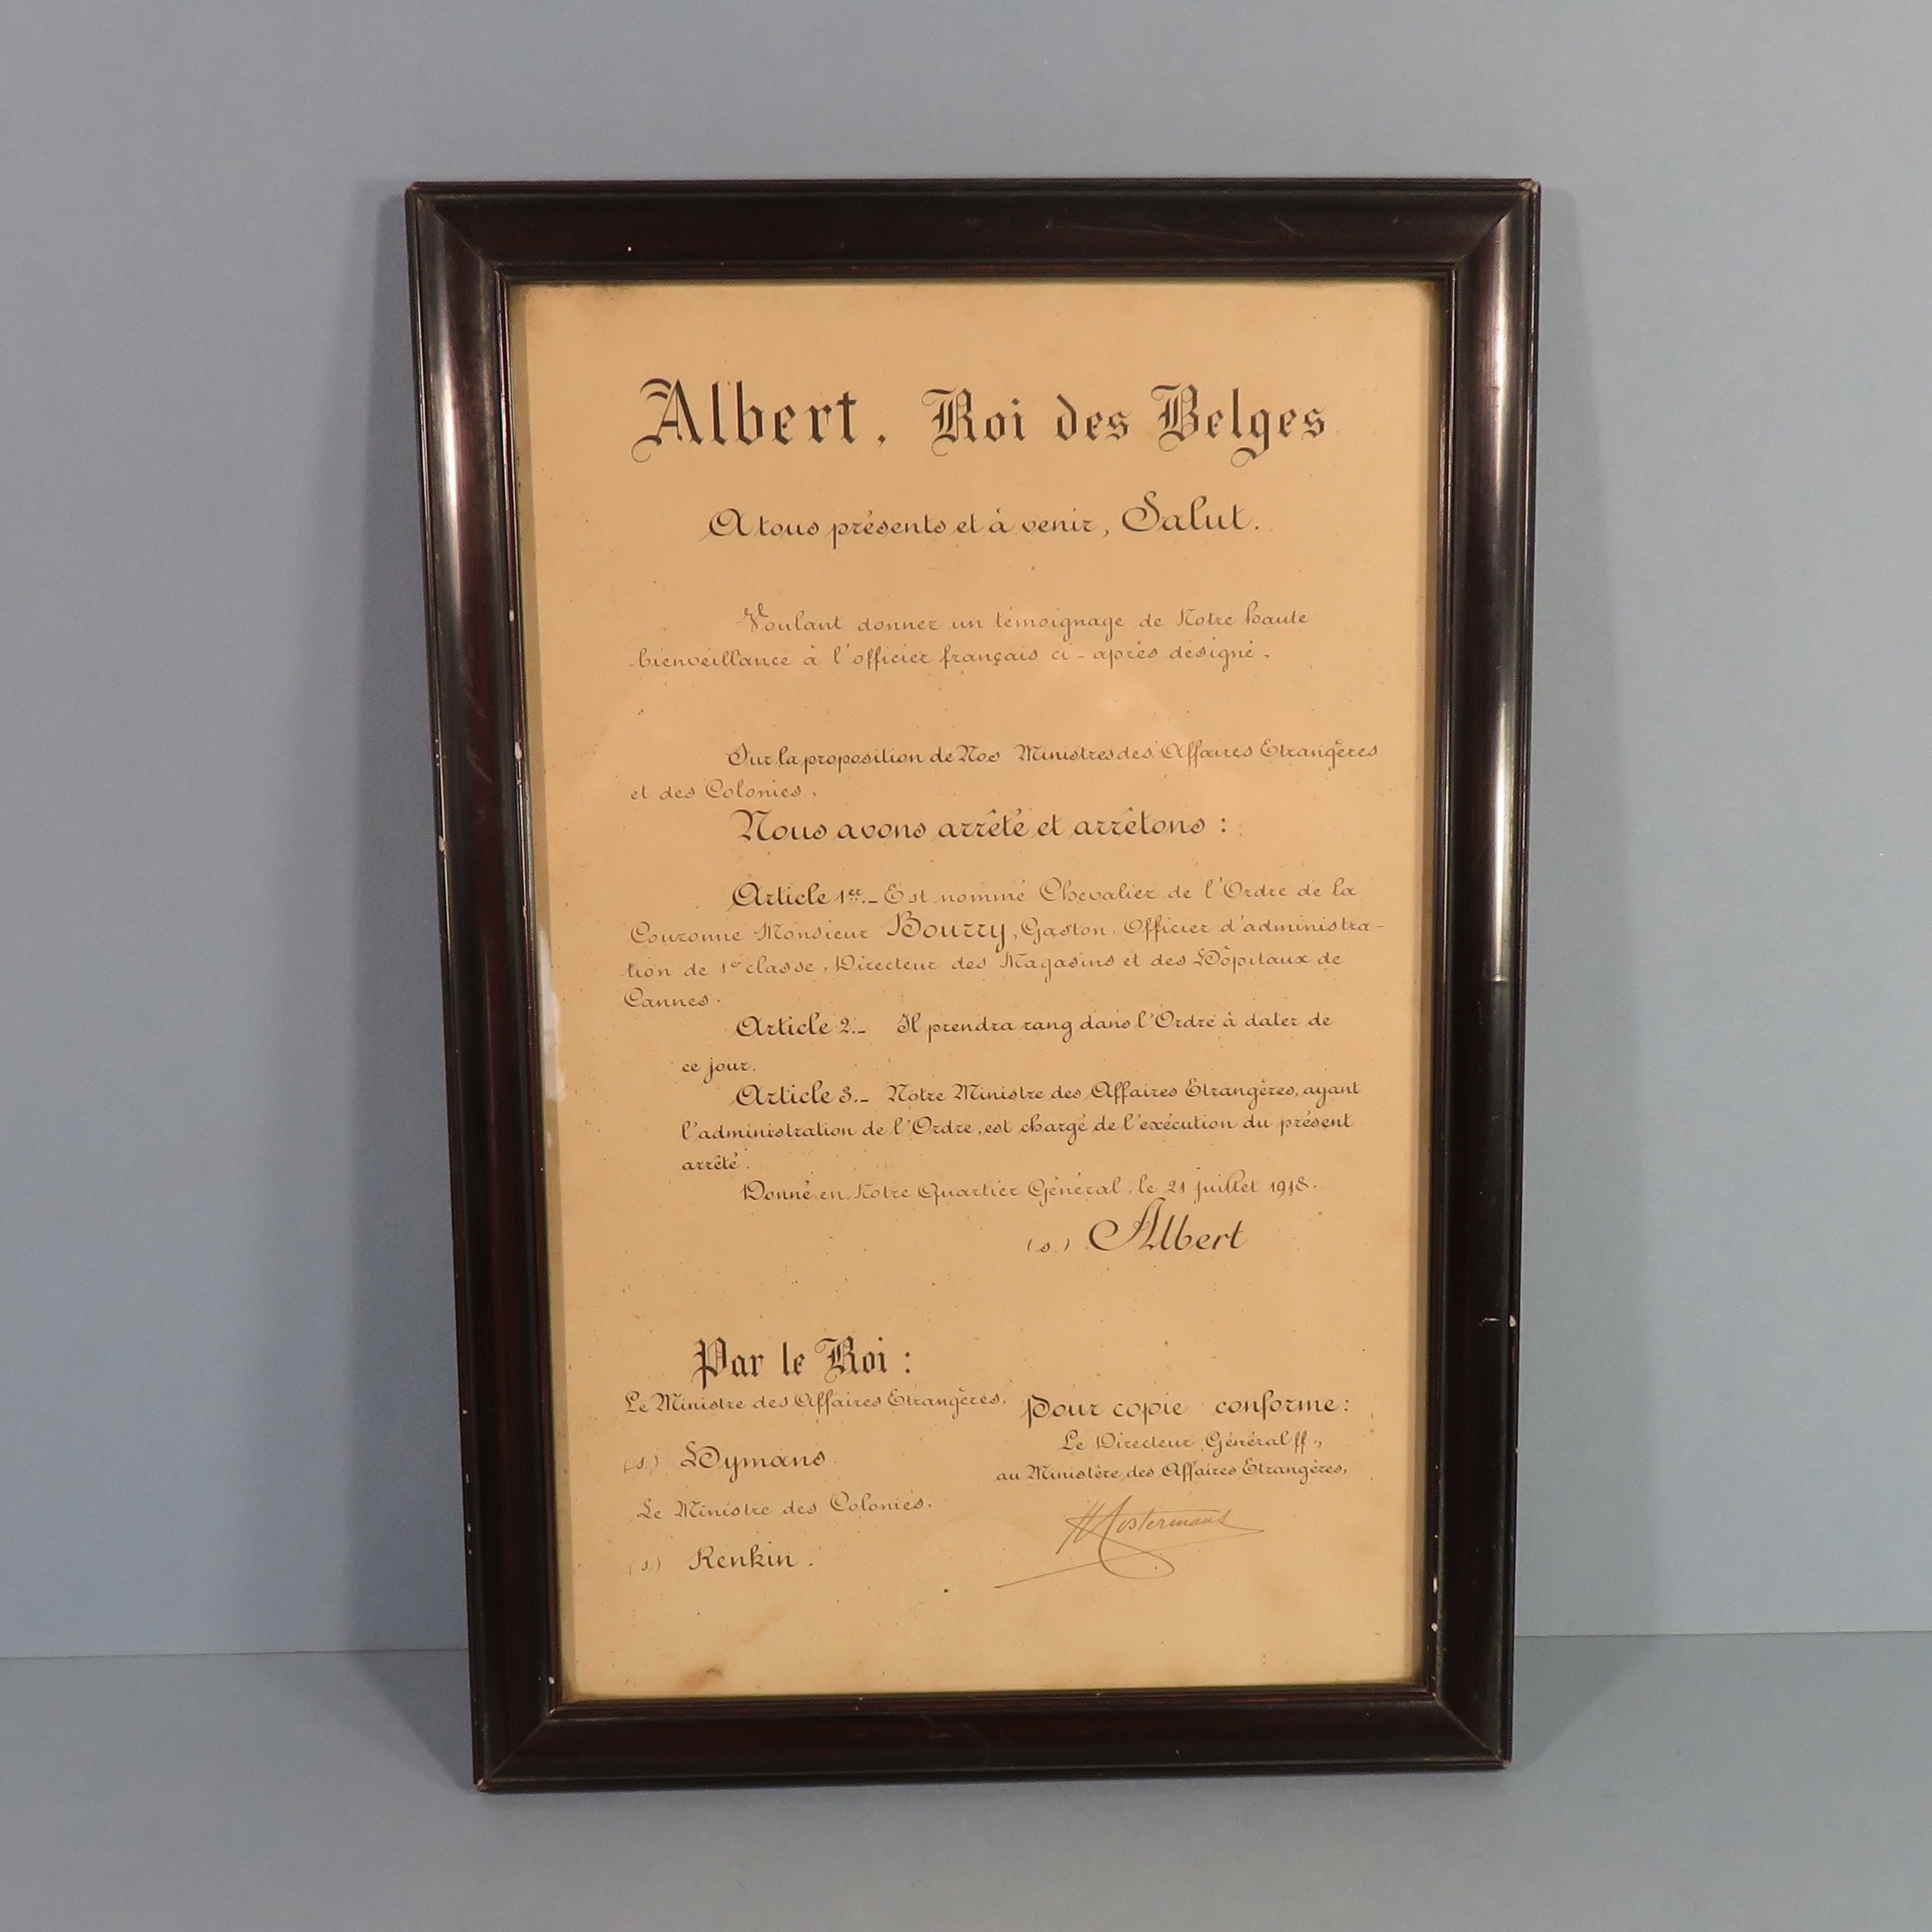 Albert, Roi des Belges
A tous présents et à venir, Salut.
Voulant donner un témoignage de Notre haute
bienveillance à l'officier français ci-après désigné,
Sur la proposition de Nos Ministres des Affaires Etrangères
et des Colonies,
Nous avons arrêté et arrêtons :
Article 1er.- Est nommé Chevalier de l'Ordre de la
Couronne Monsieur Bourry, Gaston, Officier d'administra-
tion de 1e classe, Directeur des Magasins et des Hôpitaux de
Cannes.
Article 2.- Il prendra rang dans l'Ordre à dater de
ce jour.
Article 3.- Notre Ministre des Affaires Etrangères, ayant
l'administration de l'Ordre, est chargé de l'exécution du présent
arrêté.
Donné en Notre Quartier Général, le 21 juillet 1918.
(s.) Albert
Par le Roi :
Le Ministre des Affaires Etrangères,
(s.) Hymans.
Le Ministre des Colonies,
(s.) Renkin.
Pour copie conforme :
Le Directeur Général ff.,
au Ministère des Affaires Etrangères,